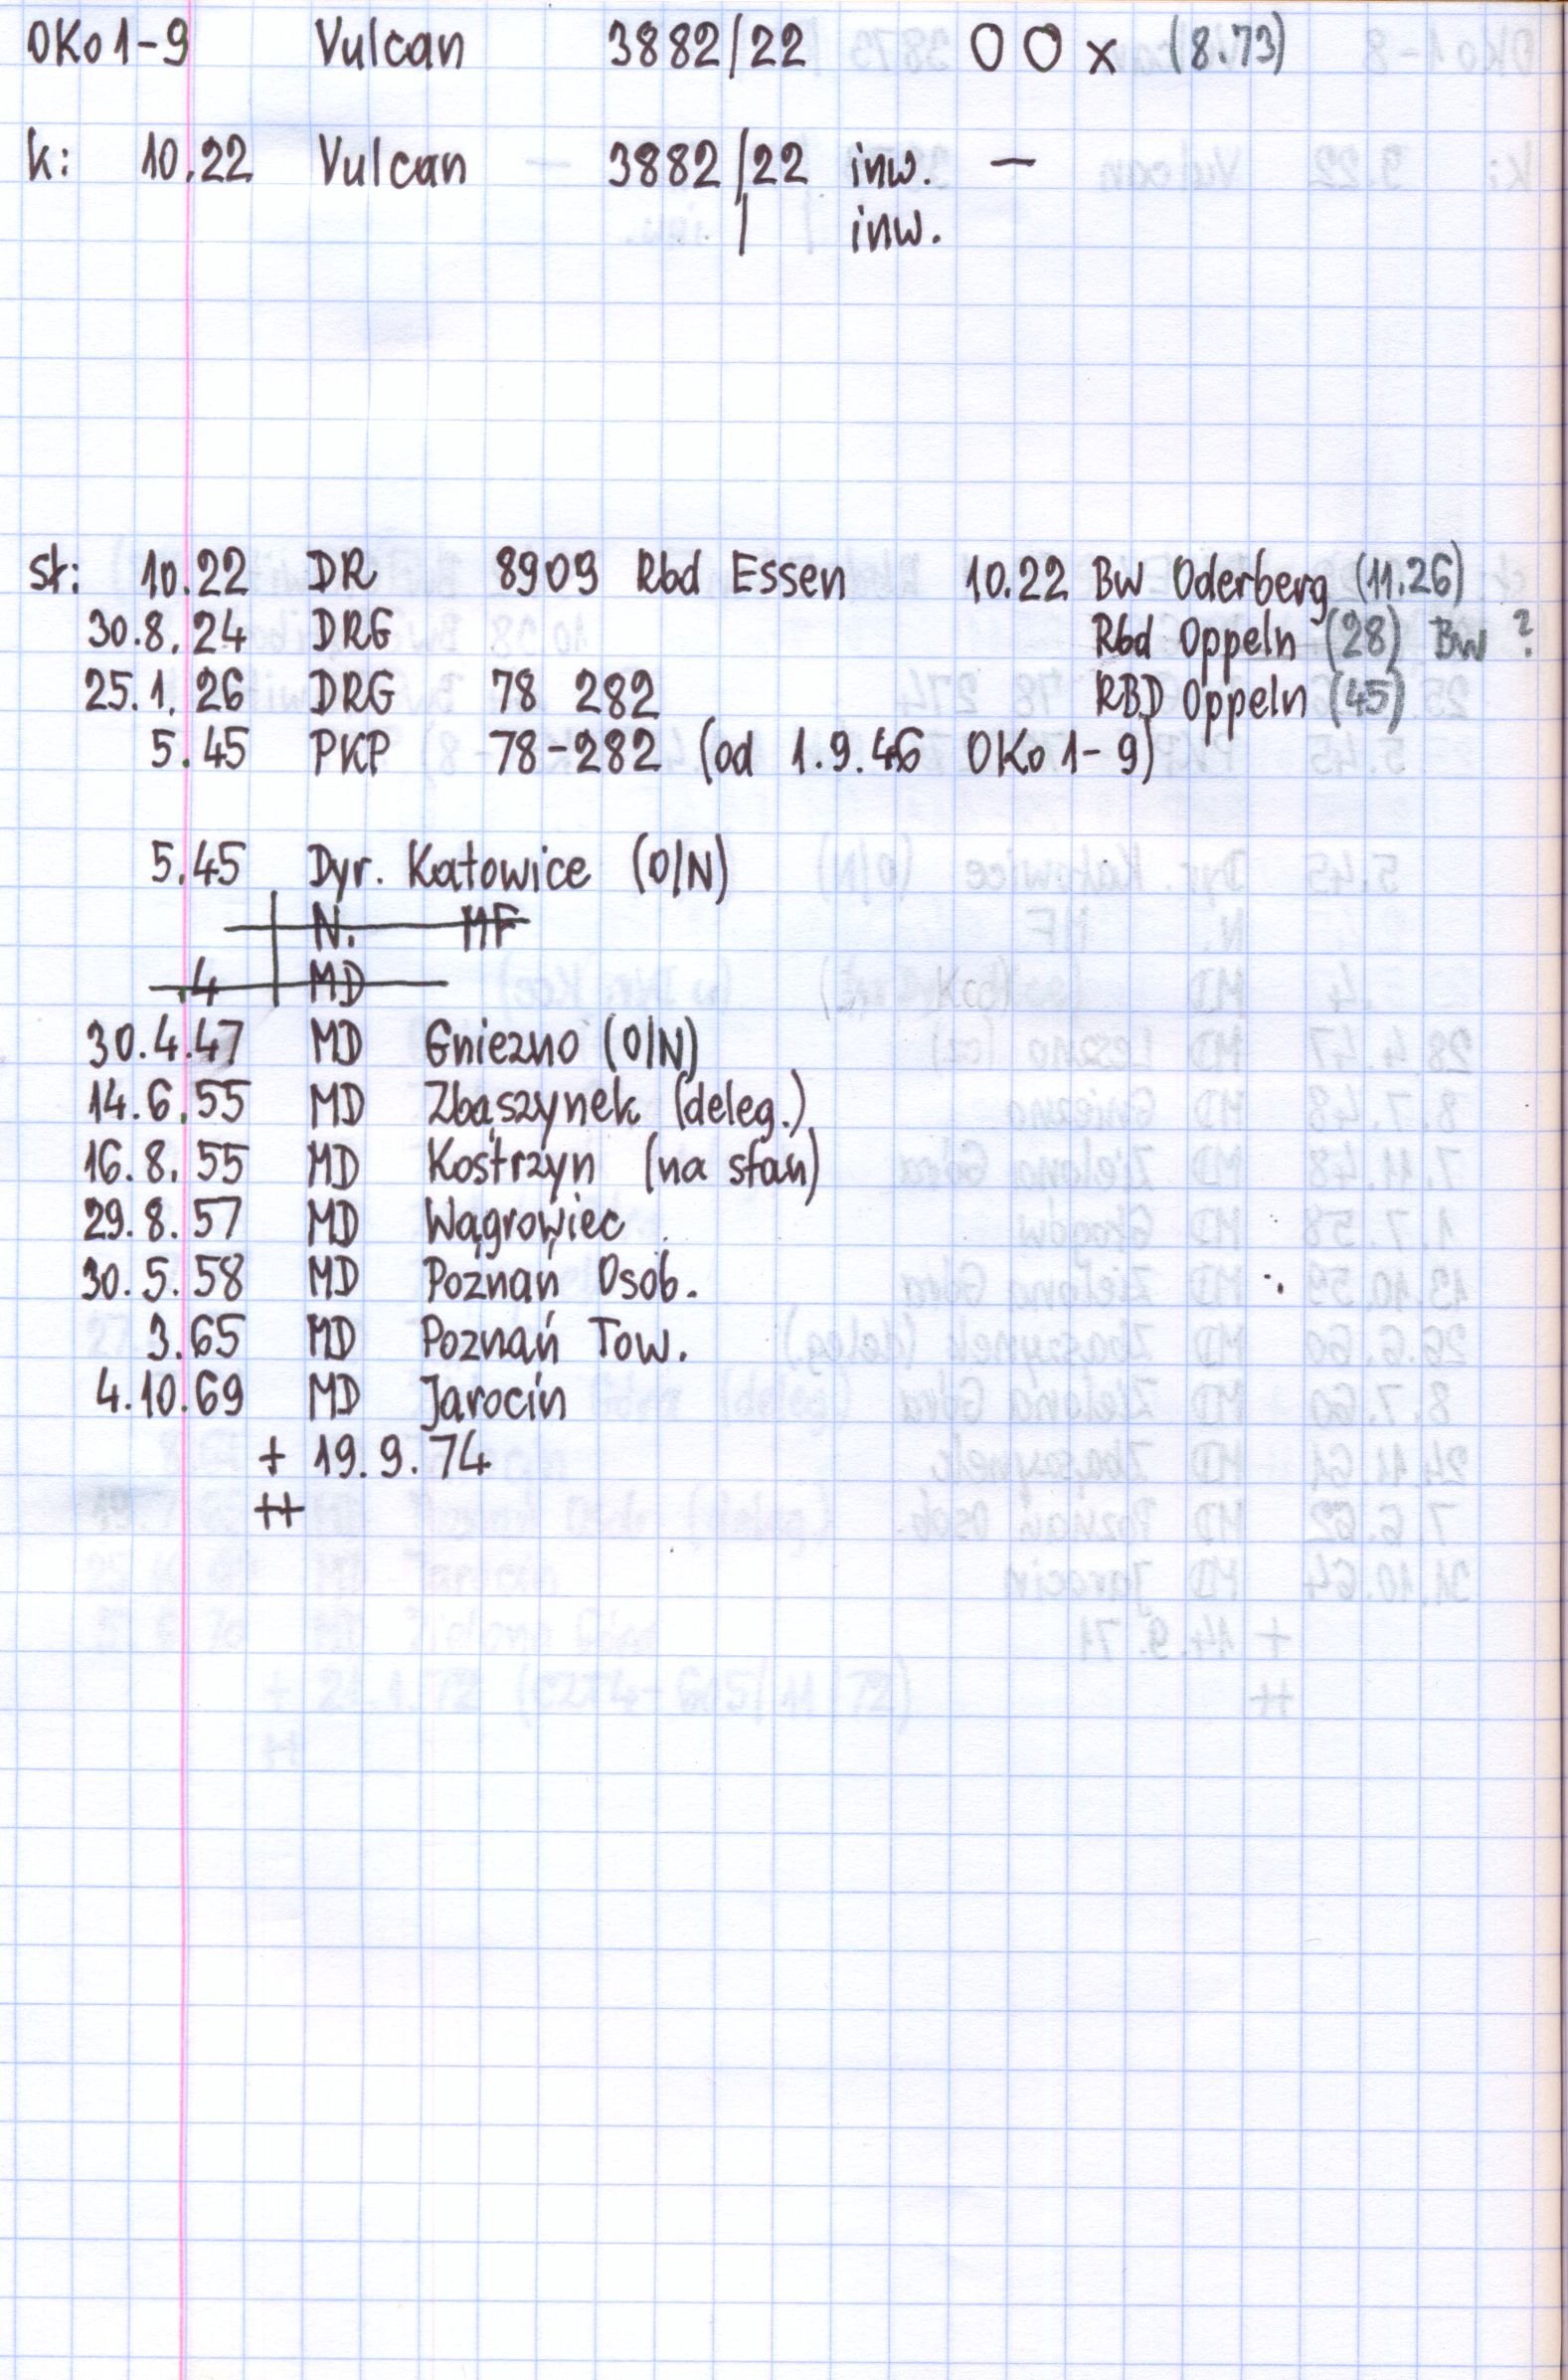 OKo1-9 Vulcan 3882/22 OOx (8.73)
k: 10.22 Vulcan - 3882/22 inw. -
/ inw.
st: 10.22 DR 8909 Rbd Essen 10.22 Bw Oderberg (11.26)
30.8.24 DRG Rbd Oppeln (28) Bw ?
25.1.26 DRG 78 282 RBD Oppeln (45)
5.45 PKP 78-282 (od 1.9.46 OKo1-9)
5.45 Dyr. Katowice (O/N)
N. MF
.4 MD
30.4.47 MD Gniezno (O/N)
14.6.55 MD Zbąszynek (deleg.)
16.8.55 MD Kostrzyn (na stan)
29.8.57 MD Wągrowiec
30.5.58 MD Poznań Osob.
3.65 MD Poznań Tow.
4.10.69 MD Jarocin
+ 19.9.74
++